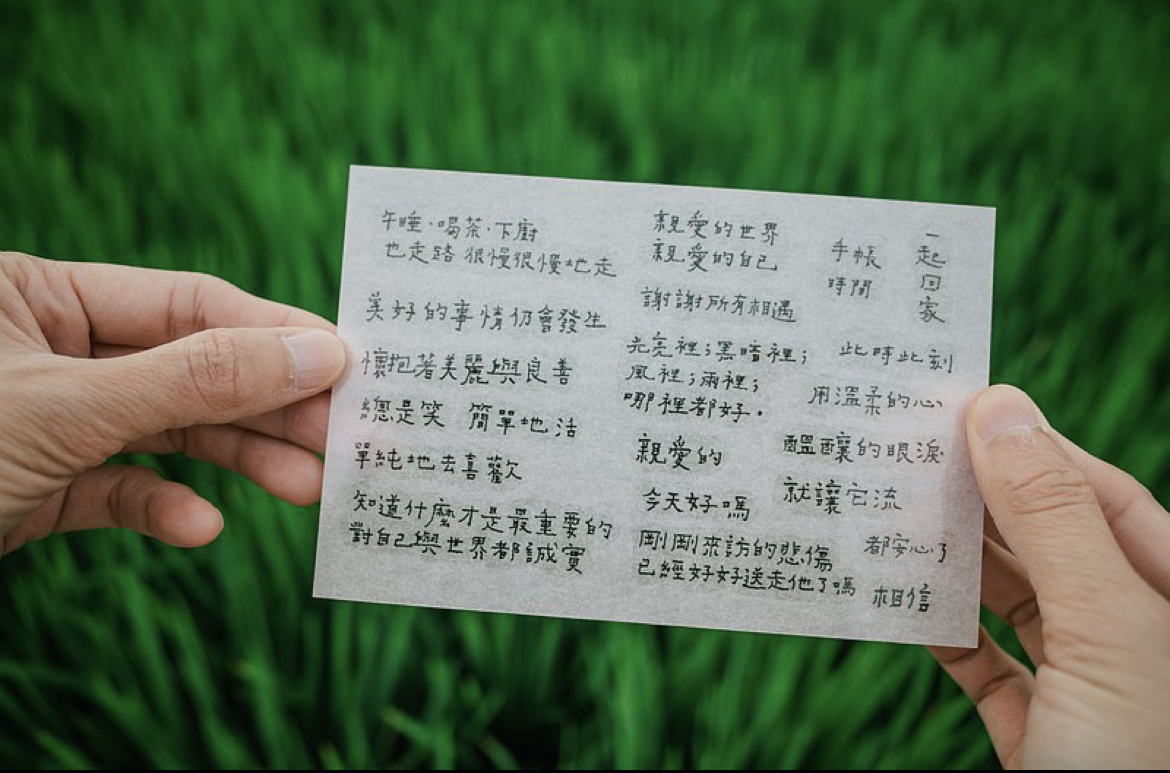 午睡·喝茶·下廚
也走路 很慢很慢地走
美好的事情仍會發生
懷抱著美麗與良善
總是笑 簡單地活
單純地去喜歡
知道什麼才是最重要的
對自己與世界都誠實
親愛的世界
親愛的自己
謝謝所有相遇
光亮裡；黑暗裡；
風裡；雨裡；
哪裡都好。
親愛的
今天好嗎
剛剛來訪的悲傷
已經好好送走他了嗎
手帳
時間
一起回家
此時此刻
用溫柔的心
醞釀的眼淚
就讓它流
都安心了
相信